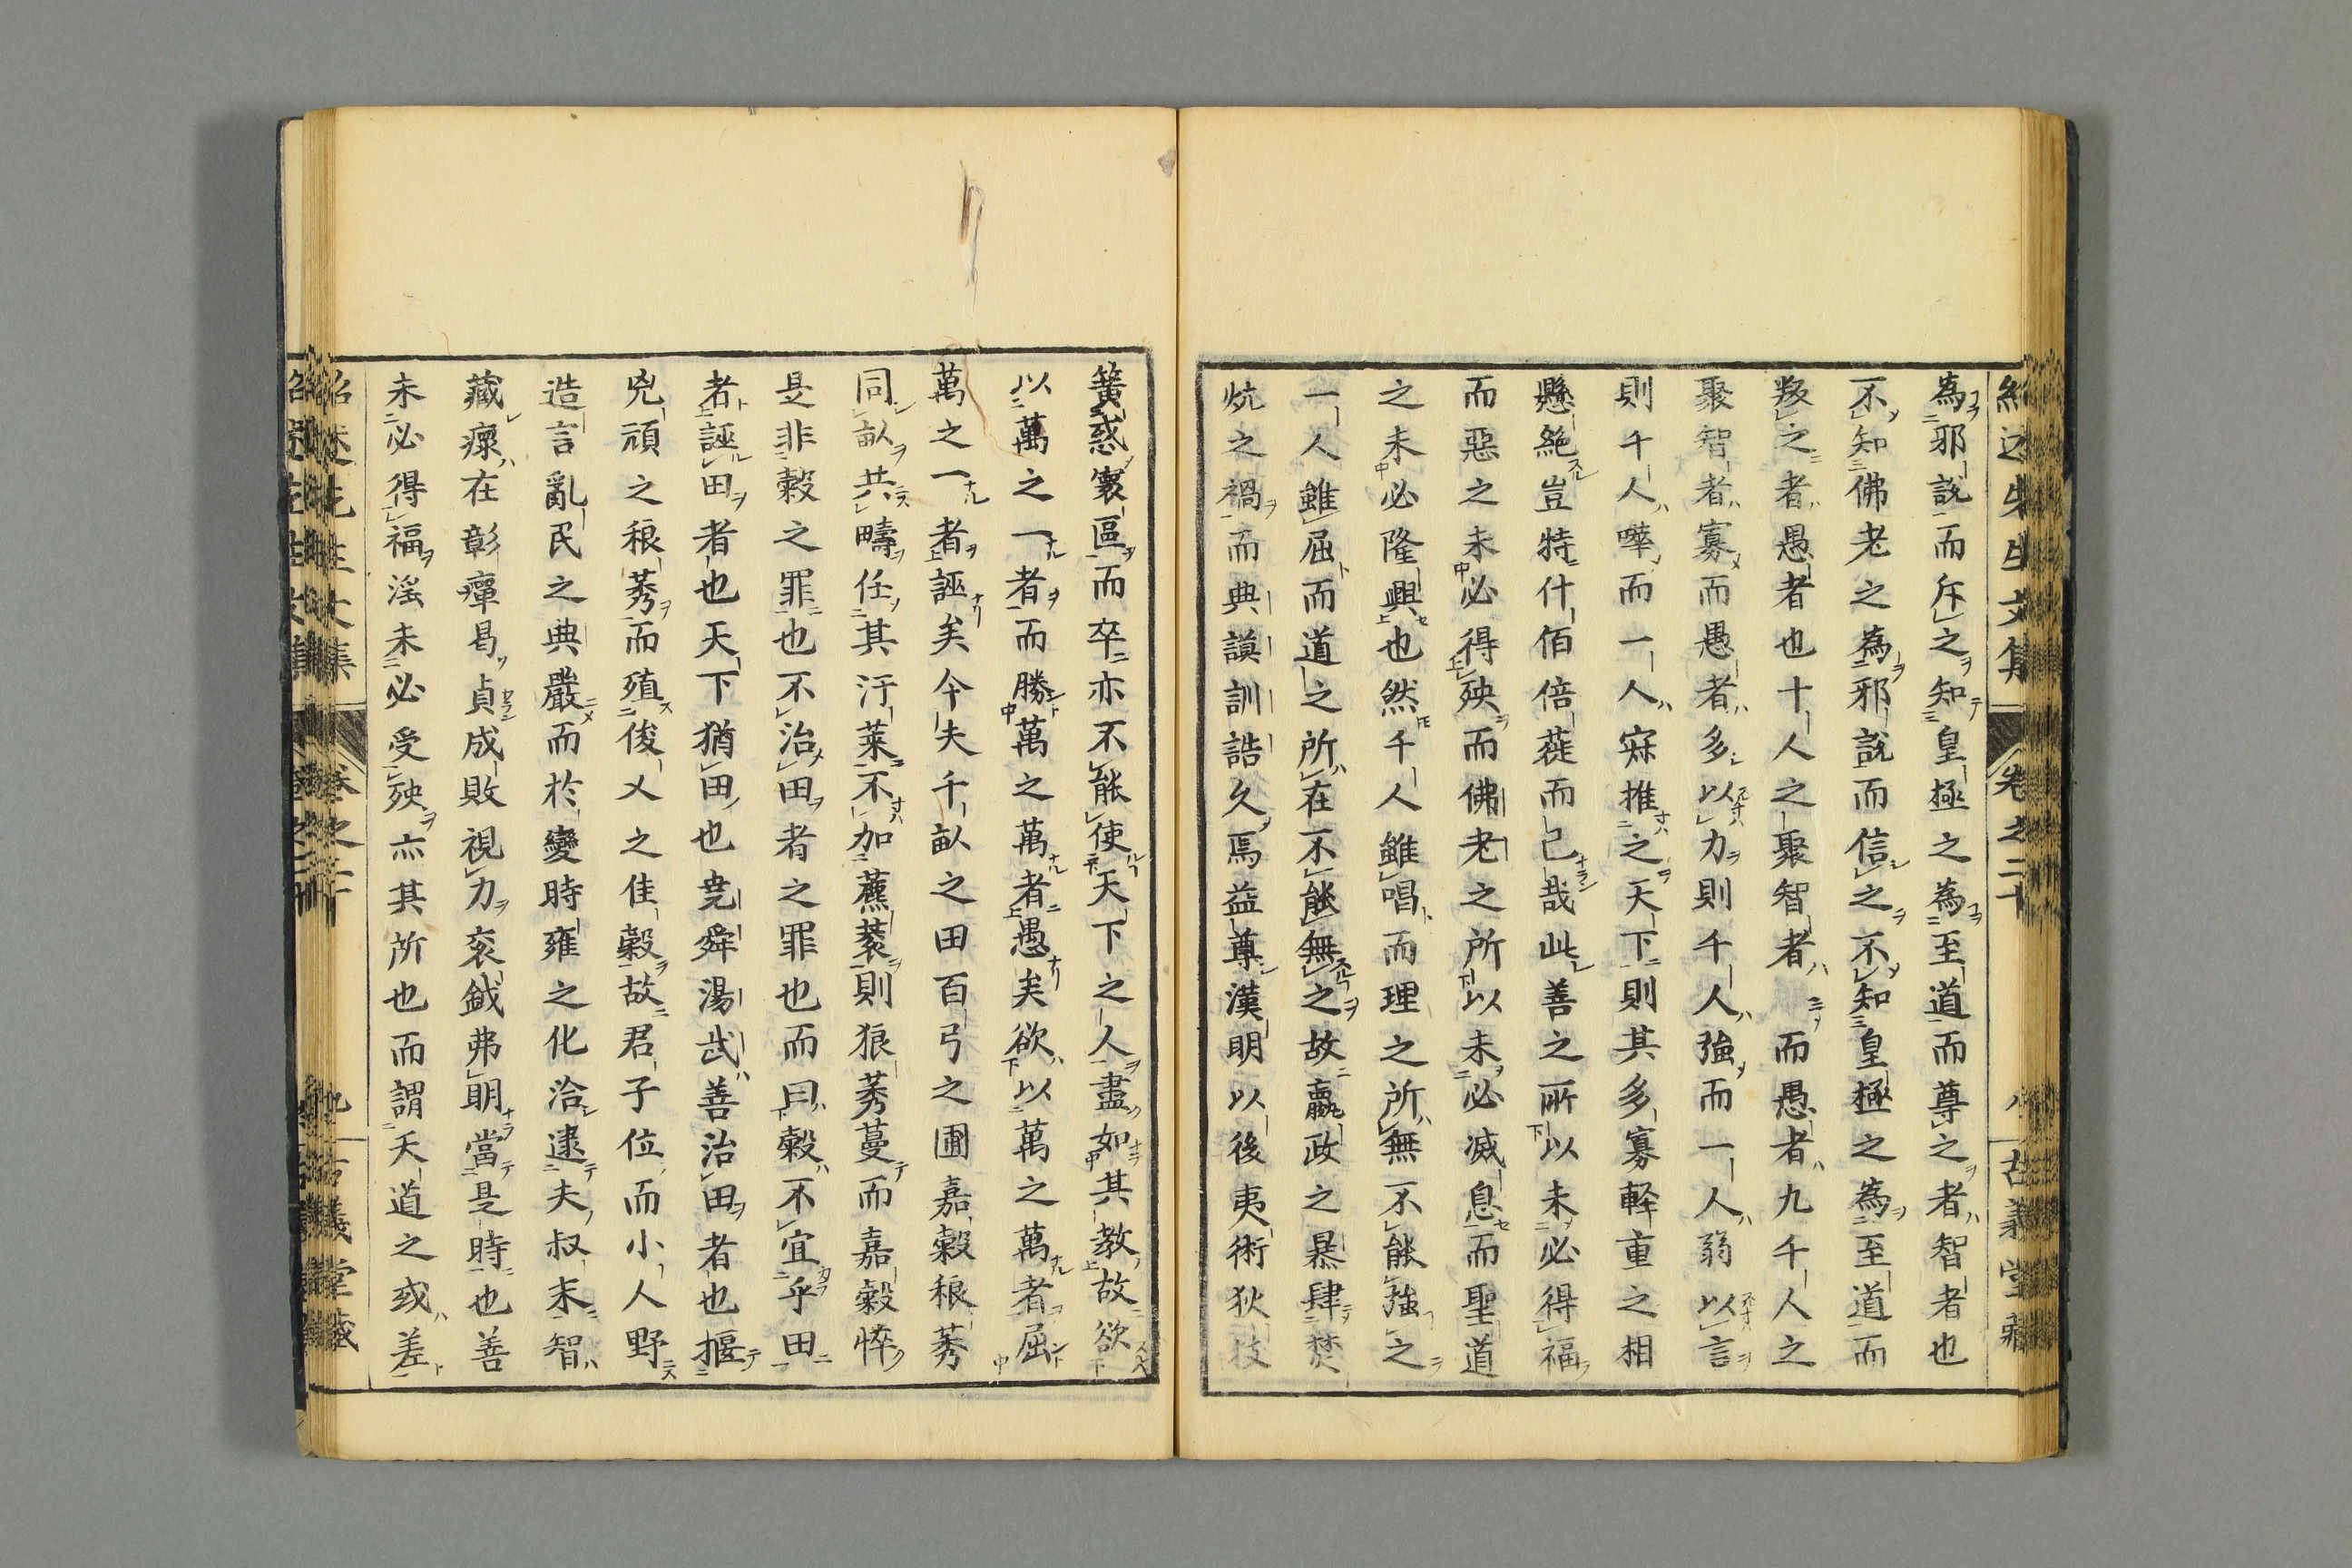 紹述先生文集 卷之二十 八 古義堂藏
為邪說而斥之知皇極之為至道而尊之者智者也
不知佛老之為邪說而信之不知皇極之為至道而
叛之者愚者也十人之聚智者而愚者九千人之
聚智者寡而愚者多以力則千人強而一人弱以言
則千人嘩而一人寂推之天下則其多寡軽重之相
懸絶豈特什佰倍蓰而已哉此善之所以未必得福
而惡之未必得殃而佛老之所以未必滅息而聖道
之未必隆興也然千人雖唱而理之所無不能強之
一人雖屈而道之所在不能無之故嬴政之暴肆焚
炕之禍而典謨訓誥久焉益尊漢明以後夷術狄技
簧惑寰區而卒亦不能使天下之人盡如其教故欲
以萬之一者而勝萬之萬者愚矣欲以萬之萬者屈
萬之一者誣矣今夫千畝之田百弓之圃嘉穀稂莠
同畝共疇任其汙萊不加藨蔉則狼莠蔓而嘉穀悴
是非穀之罪也不治田者之罪也而曰穀不宜乎田
者誣田者也天下猶田也堯舜湯武善治田者也揠
兇頑之稂莠而殖俊乂之佳穀故君子位而小人野
造言亂民之典嚴而於變時雍之化洽逮夫叔末智
藏瘝在彰癉曷貞成敗視力衮鉞弗明當是時也善
未必得福淫未必受殃亦其所也而謂天道之或差
紹述先生文集 卷之二十 九 古義堂藏